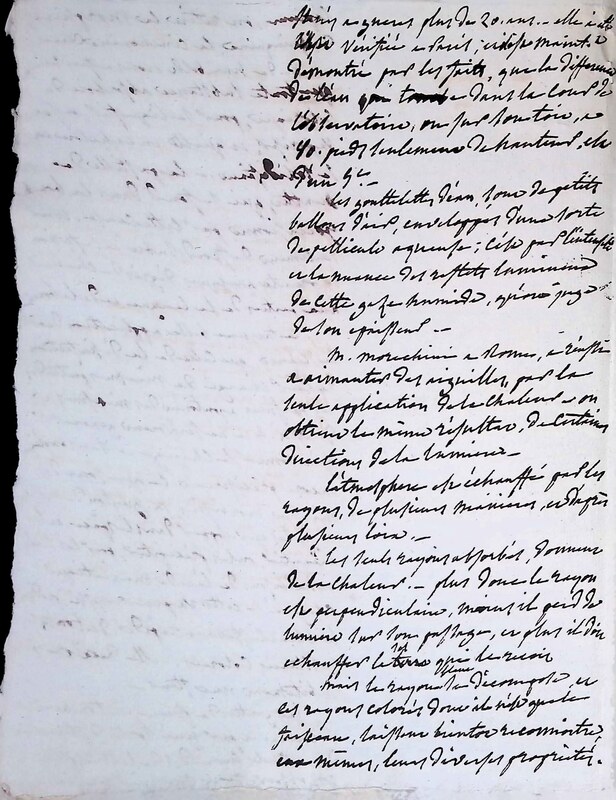 a gueres plus de 20. ans.. elle a été
vérifiée a Paris; il est maint.t
démontré par les faits, que la différence
de l'eau qui tombe dans la Cour de
l'observatoire, ou sur son toit, a
40. pieds seulement de hauteur, est
d'un 5.e —
les gouttelettes d'eau, sont de petits
ballons d'air, enveloppés d'une sorte
de pellicule aqueuse; c'est par l'intensité
et la nuance des reflets lumineux
de cette gaze humide, qu'on juge
de son épaisseur —
M. morecchini a Rome, a réussi
a aimanter des aiguilles, par la
seule application de la chaleur — on
obtient le même résultat, de certaines
directions de la lumière —
l'atmosphere est échauffé par les
rayons, de plusieurs manières, et d'après
plusieurs loix. —
les seuls rayons absorbés, donnent
de la chaleur. — plus donc le rayon
est perpendiculaire, moins il perd de
lumière sur son passage, et plus il doit
echauffer la terre qui le recoit
mais le rayon se décompose, et
ces rayons colorés dont il n'est que le
faisceau, laissent bientot reconnoitre,
eux mêmes, leurs diverses propriétés.